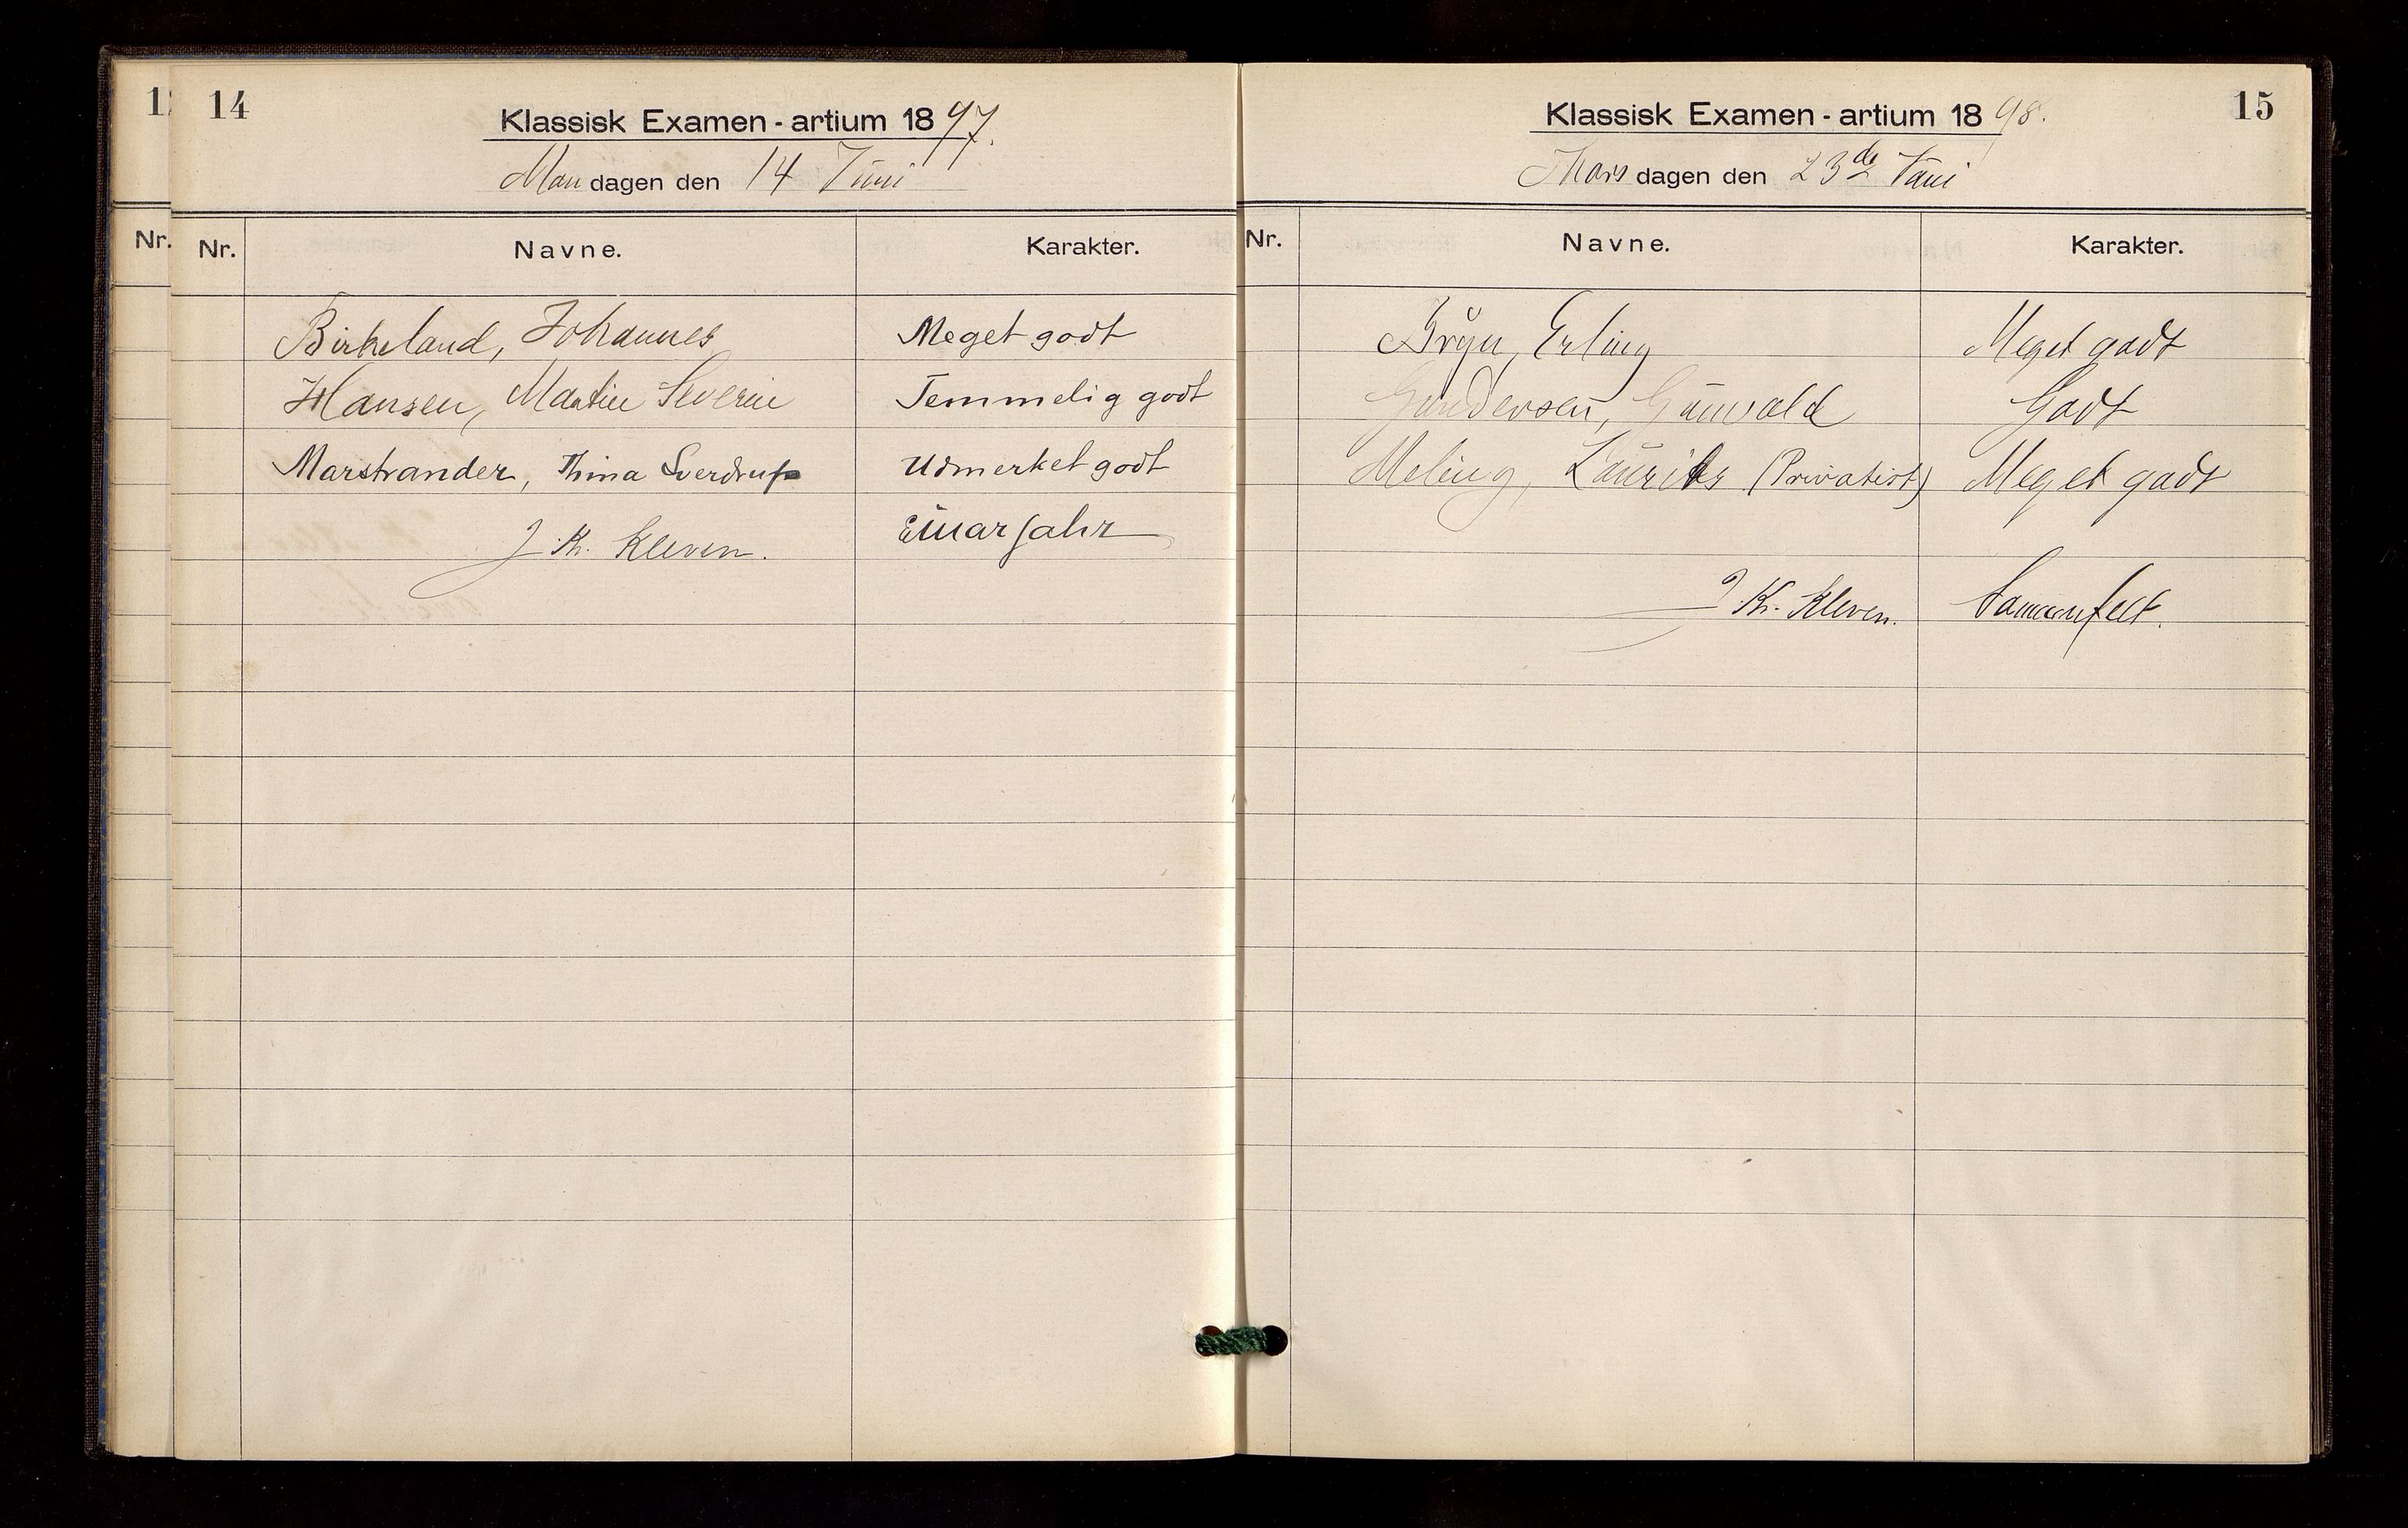 14
Klassisk Examen - artium 1897.
Mandagen den 14 Juni
Nr. Navne. Karakter.
Birkeland, Johannes Meget godt
Hansen, Martin Severin Temmelig godt
Marstrander, Thina Sverdrup Udmerket godt
J Kr. Kleven. Einar Sahr
15
Klassisk Examen - artium 1898.
Thorsdagen den 23de Juni
Nr. Navne. Karakter.
Bryn, Erling Meget godt
Gundersen, Gunvald Godt
Meling, Laurits (Privatist) Meget godt
J Kr. Kleven.
Nr.